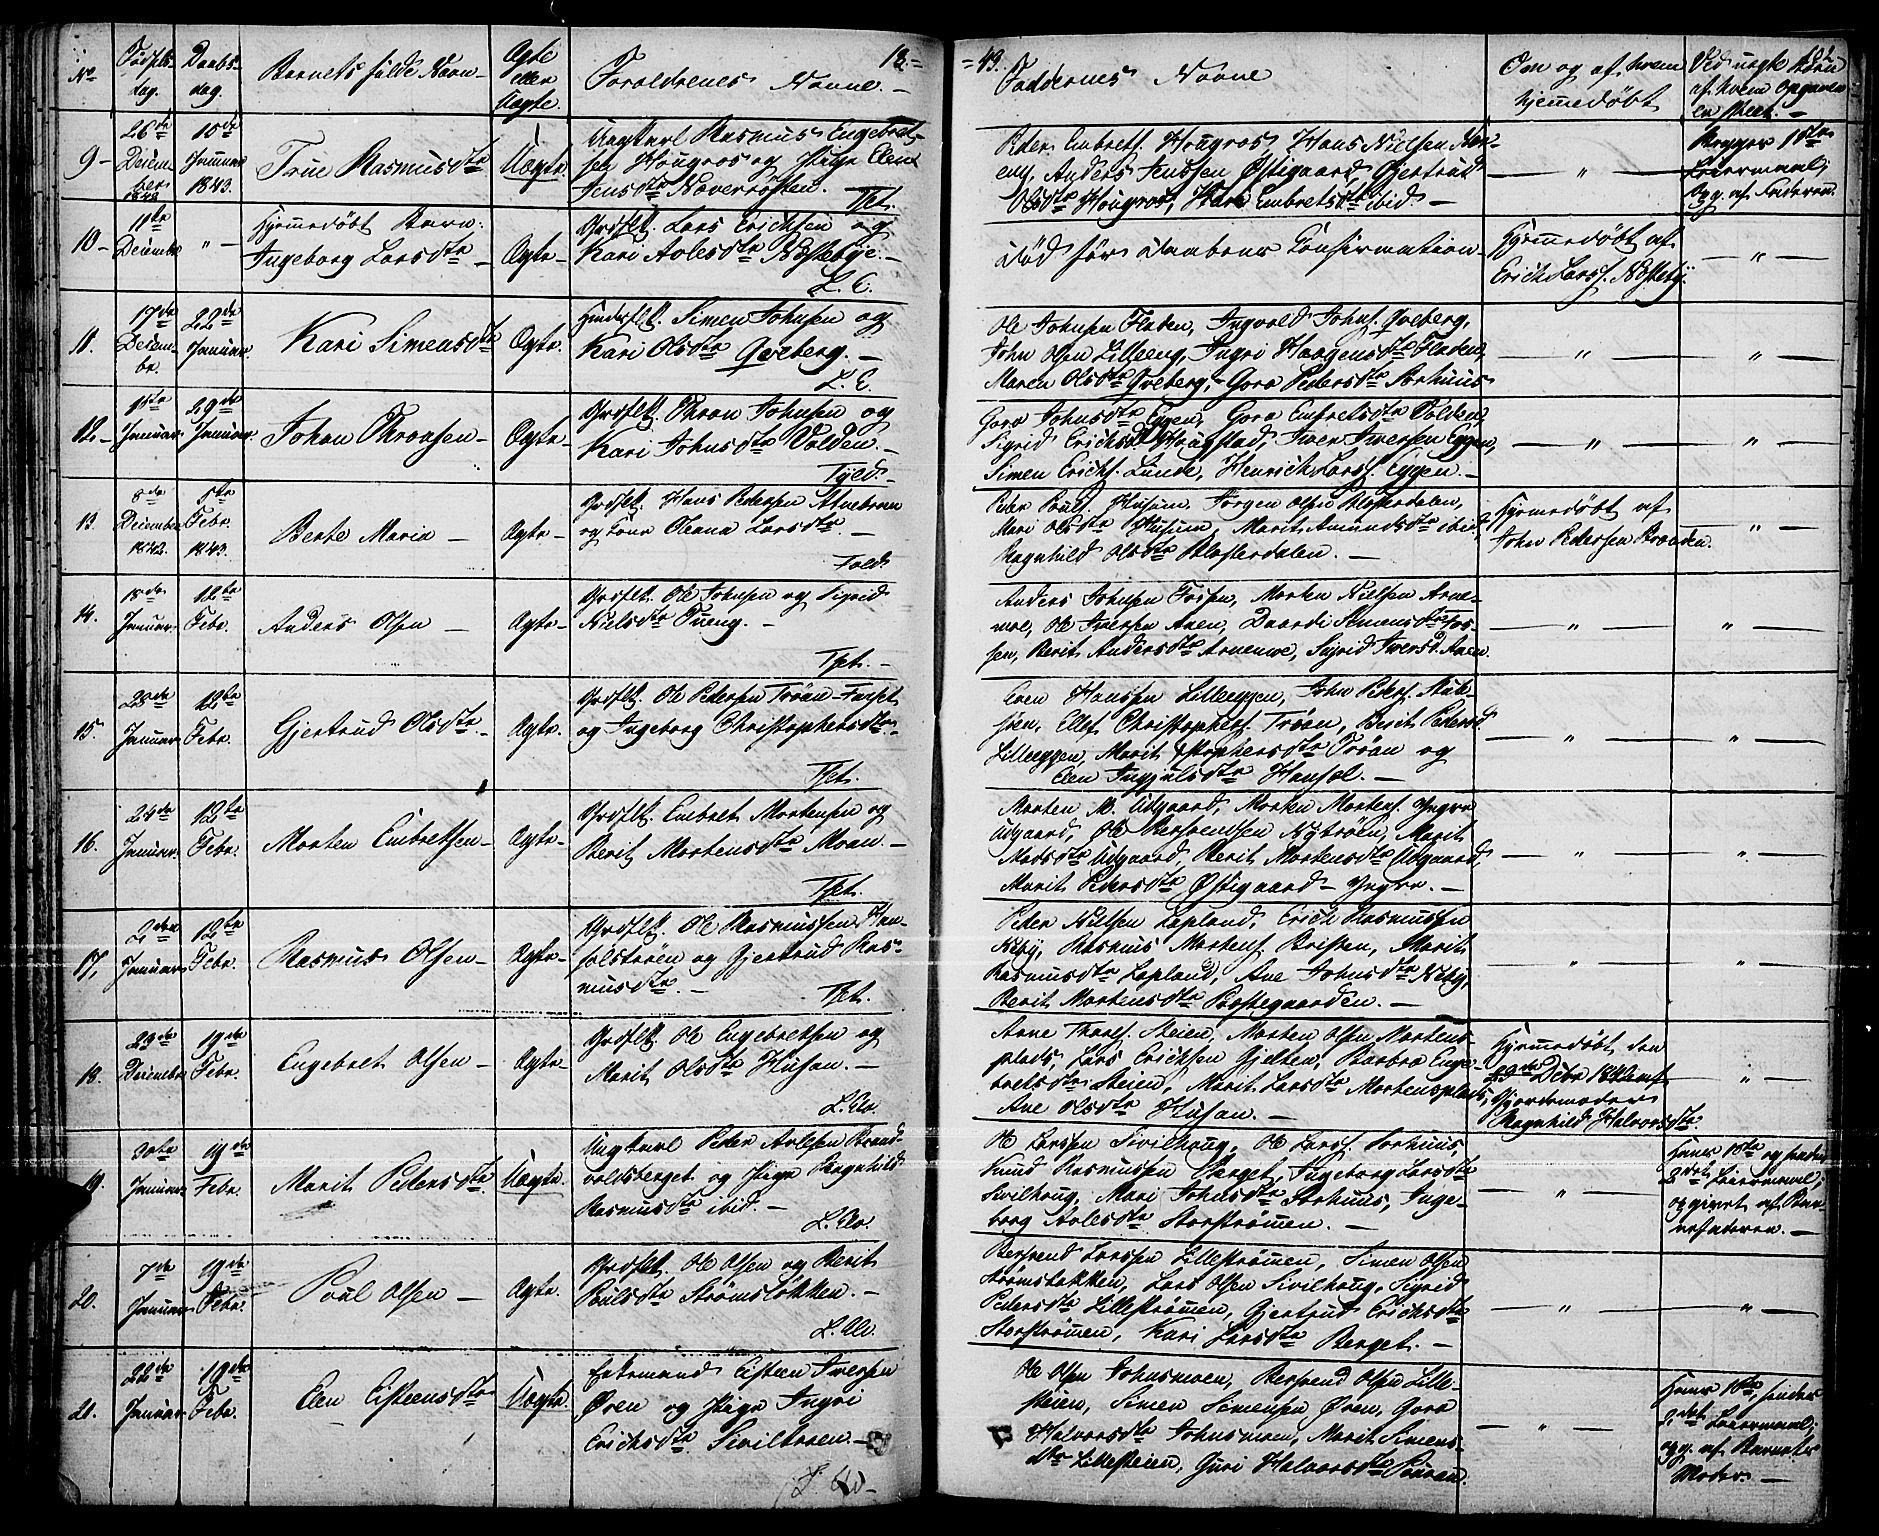 18= =43. 102
No
Fødsels-
dag.
Daabs-
dag.
Barnets fulde Navn
Ægte
eller
Uægte.
Forældrenes Navne.
Faddernes Navne
Om og af hvem
hjemmedøbt
Ved uægte Børn
af hvem Opgaven
er skeet.
9
26de
Decem-
ber
1842
15de
Januar
1843.
True Rasmusdtr
Uægte
Ungkarl Rasmus Engebret-
sen Hougros og Pige Elen
Jensdtr Næverrosten.
Tft.
Peder Embrets. Hougros, Hans Nielsen
Anders Jenssen Østigaard, Gjertrud
Olsdtr Hougros, Kari Embretsdtr ibid
Begges 1ste
Leiermaal;
Opg. af Faderen
10
11te
Decembr
Hjemmedøbt Barn:
Ingeborg Larsdtr
Ægte
Grdflk. Lars Erichsen og
Kari Aolesdtr Nøsteby.
L. E.
død før Daabens Confirmation
Hjemmedøbt af
Erich Larss. Nøsteby.
11.
17de
Decem-
br.
22de
Januar
Kari Simensdtr
Ægte
Simen Johnsen og
Kari Olsdtr Qveberg.
L. E.
Ole Johnsen Floden, Ingvald Johns. Qveberg,
John Olsen Lilleeng, Ingri Haagensdtr Floden,
Maren Olsdtr Qveberg, Gora Pedersdtr Sorhuus
12
Januar
29de
Januar
Johan Thronsen
Ægte
Grdflk. Thron Johnsen og
Kari Johnsdtr Volden.
Tyld.
Gora Johnsdtr Eggen, Gora Embretsdtr Volden,
Sigrid Erichsd. Haugstad, Iver Iversen Eggen,
Simen Erichs. Lunde, Henrich Larss. Eggen.
13.
8de
December
1842.
5te
Febr.
1843.
Berte Maria
Ægte
Grdflk. Hans Pedersen
og Kone Oleana Larsdtr.
Fold.
Peder Pouls. Husum, Jørgen Olsen Klosterdalen,
Mari Olsdtr Husum, Marit Amundsdtr ibid,
Ragnhild Olsdtr Klosterdalen.
Hjemmedøbt af
John Pedersen Brænden.
14.
Januar
12te
Febr.
Anders Olsen
Ægte
Grdflk. Ole Johnsen og Sigrid
Nielsdtr Tueng.
Tft.
Anders Johnsen Fossen, Morten Nielsen Arne-
moe, Ole Iversen Aaen, Daardi Simensdtr Fos-
sen, Berit Andersdtr Arnemoe, Sigrid Iversd. Aaen.
15.
28de
Januar
12te
Febr.
Gjertrud Olsdtr.
Ægte.
Grdflk. Ole Pedersen Trøan Fæset
og Ingeborg Christophersdtr.
Tft.
Even Hanssen Lilleeggen, John Peders.
Ellef Christophers. Trøan, Berit Pedersd.
Lilleeggen, Marit Xstophersdtr Trøan og
Elen Ingjulsdtr Hansæl.
16.
24de
Januar
12te
Febr.
Morten Embretsen
Ægte
Grdflk. Embret Mortensen og
Berit Mortensdtr Moan.
Tft.
Morten M. Udgaard, Morten Mortens. Yngre
Udgaard, Ole Bersvendsen Nytrøen, Marit
Madsdtr Udgaard, Berit Mortensdtr Udgaard,
Marit Pedersdtr Østigaard Yngre.
17.
Januar
12te
Febr.
Rasmus Olsen
Ægte
Grdflk. Ole Rasmussen Han-
sælstrøen og Gjertrud Ras-
musdtr.
Tft.
Peder Nielsen Lapland, Erich Rasmussen
Neby, Rasmus Mortens. Brissen, Marit
Rasmusdtr Lapland, Ane Johnsdtr Neby,
Berit Mortensdtr Præstegaarden.
18.
23de
Decembr
19de
Febr.
Engebret Olsen
Ægte
Grdflk. Ole Engebretsen og
Marit Olsdtr Husan.
L. Av.
Arne Thores. Steien, Morten Olsen Mortens-
plads, Lars Ericksen Gjelten, Barbra Enge-
bretsdtr Steien, Marit Larsdtr Mortensplads,
Ane Olsdtr Husan.
Hjemmedøbt den
Debr 1842 af
Gjordemoder
Ragnhild Halvorsdtr
19.
20te
Januar
19de
Febr.
Marit Pedersdtr.
Uægte.
Ungkarl Peder Avlesen Brand-
voldsberget og Pige Ragnhild
Rasmusdtr ibid.
L. Av.
Ole Larssen Sivilhoug, Ole Larss. Sorhuus,
Knud Rasmussen Berget, Ingeborg Larsdtr
Sivilhoug, Mari Johnsdtr Sorhuus, Inge-
borg Aolesdtr Storstrømmen.
Hans 1ste og hendes
2det Leiermaal;
opgivet af Bar-
nefaderen.
20.
7de
Januar
19de
Febr.
Poul Olsen
Ægte.
Grdflk. Ole Olsen og Berit
Poulsdtr Strømsløkken.
L. Av.
Bersvend Larssen Lillestrømmen, Simen Olsen
Strømsløkken, Lars Olsen Sivilhoug, Sigrid
Pedersdtr Lillestrømmen, Gjertrud Erichsdtr
Storstrømmen, Kari Larsdtr Berget.
21.
22de
Januar
19de
Febr.
Elen Eisteensdtr
Uægte.
Enkemand Eisteen Iversen
Øren og Pige Ingri
Erichsdtr Sivilmoen.
L. Av
Ole Olsen Johnsmoen, Bersvend Olsen Lille-
steien, Simen Simensen Øren, Gora
Halvorsdtr Johnsmoen, Marit Simens-
dtr Lillesteien, Guri Halvorsdtr
Hans 1ste, hendes
2det Leiermaal;
opg. af Barnets
Moder.